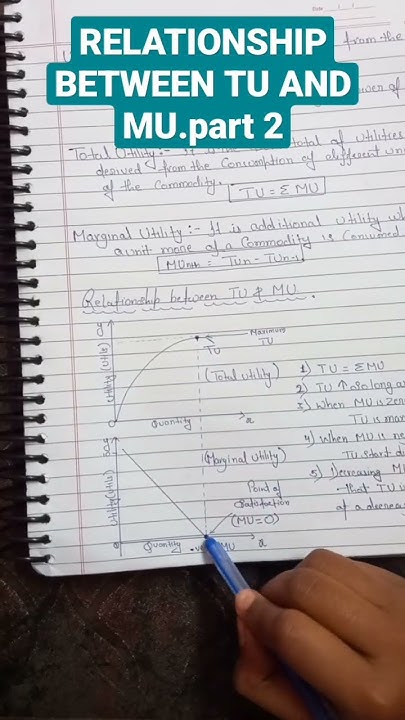 RELATIONSHIP
BETWEEN TU AND
MU.part 2
Date
from the
of
Total Utility:- It total of utilities
derived from the Consumption of different un
of the Commodity. TU = Σ MU
Marginal Utility:- It is additional utility wh
a unit more of a Commodity is Consumed
MUnth = TUn - TUn-1
Relationship between TU & MU.
y
Utility (Utils)
Maximum
TU
TU
(Total utility)
0
Quantity
x
1) TU = ΣMU
2) TU ↑ so long a
3) when MU is zer
TU is max
4) when MU is ne
TU start di
5) Decreasing M
that TU i
at a decreas
y
Utility (Utils)
(Marginal Utility)
Point of
Satisfaction
(MU=0)
0
Quantity
MU
x